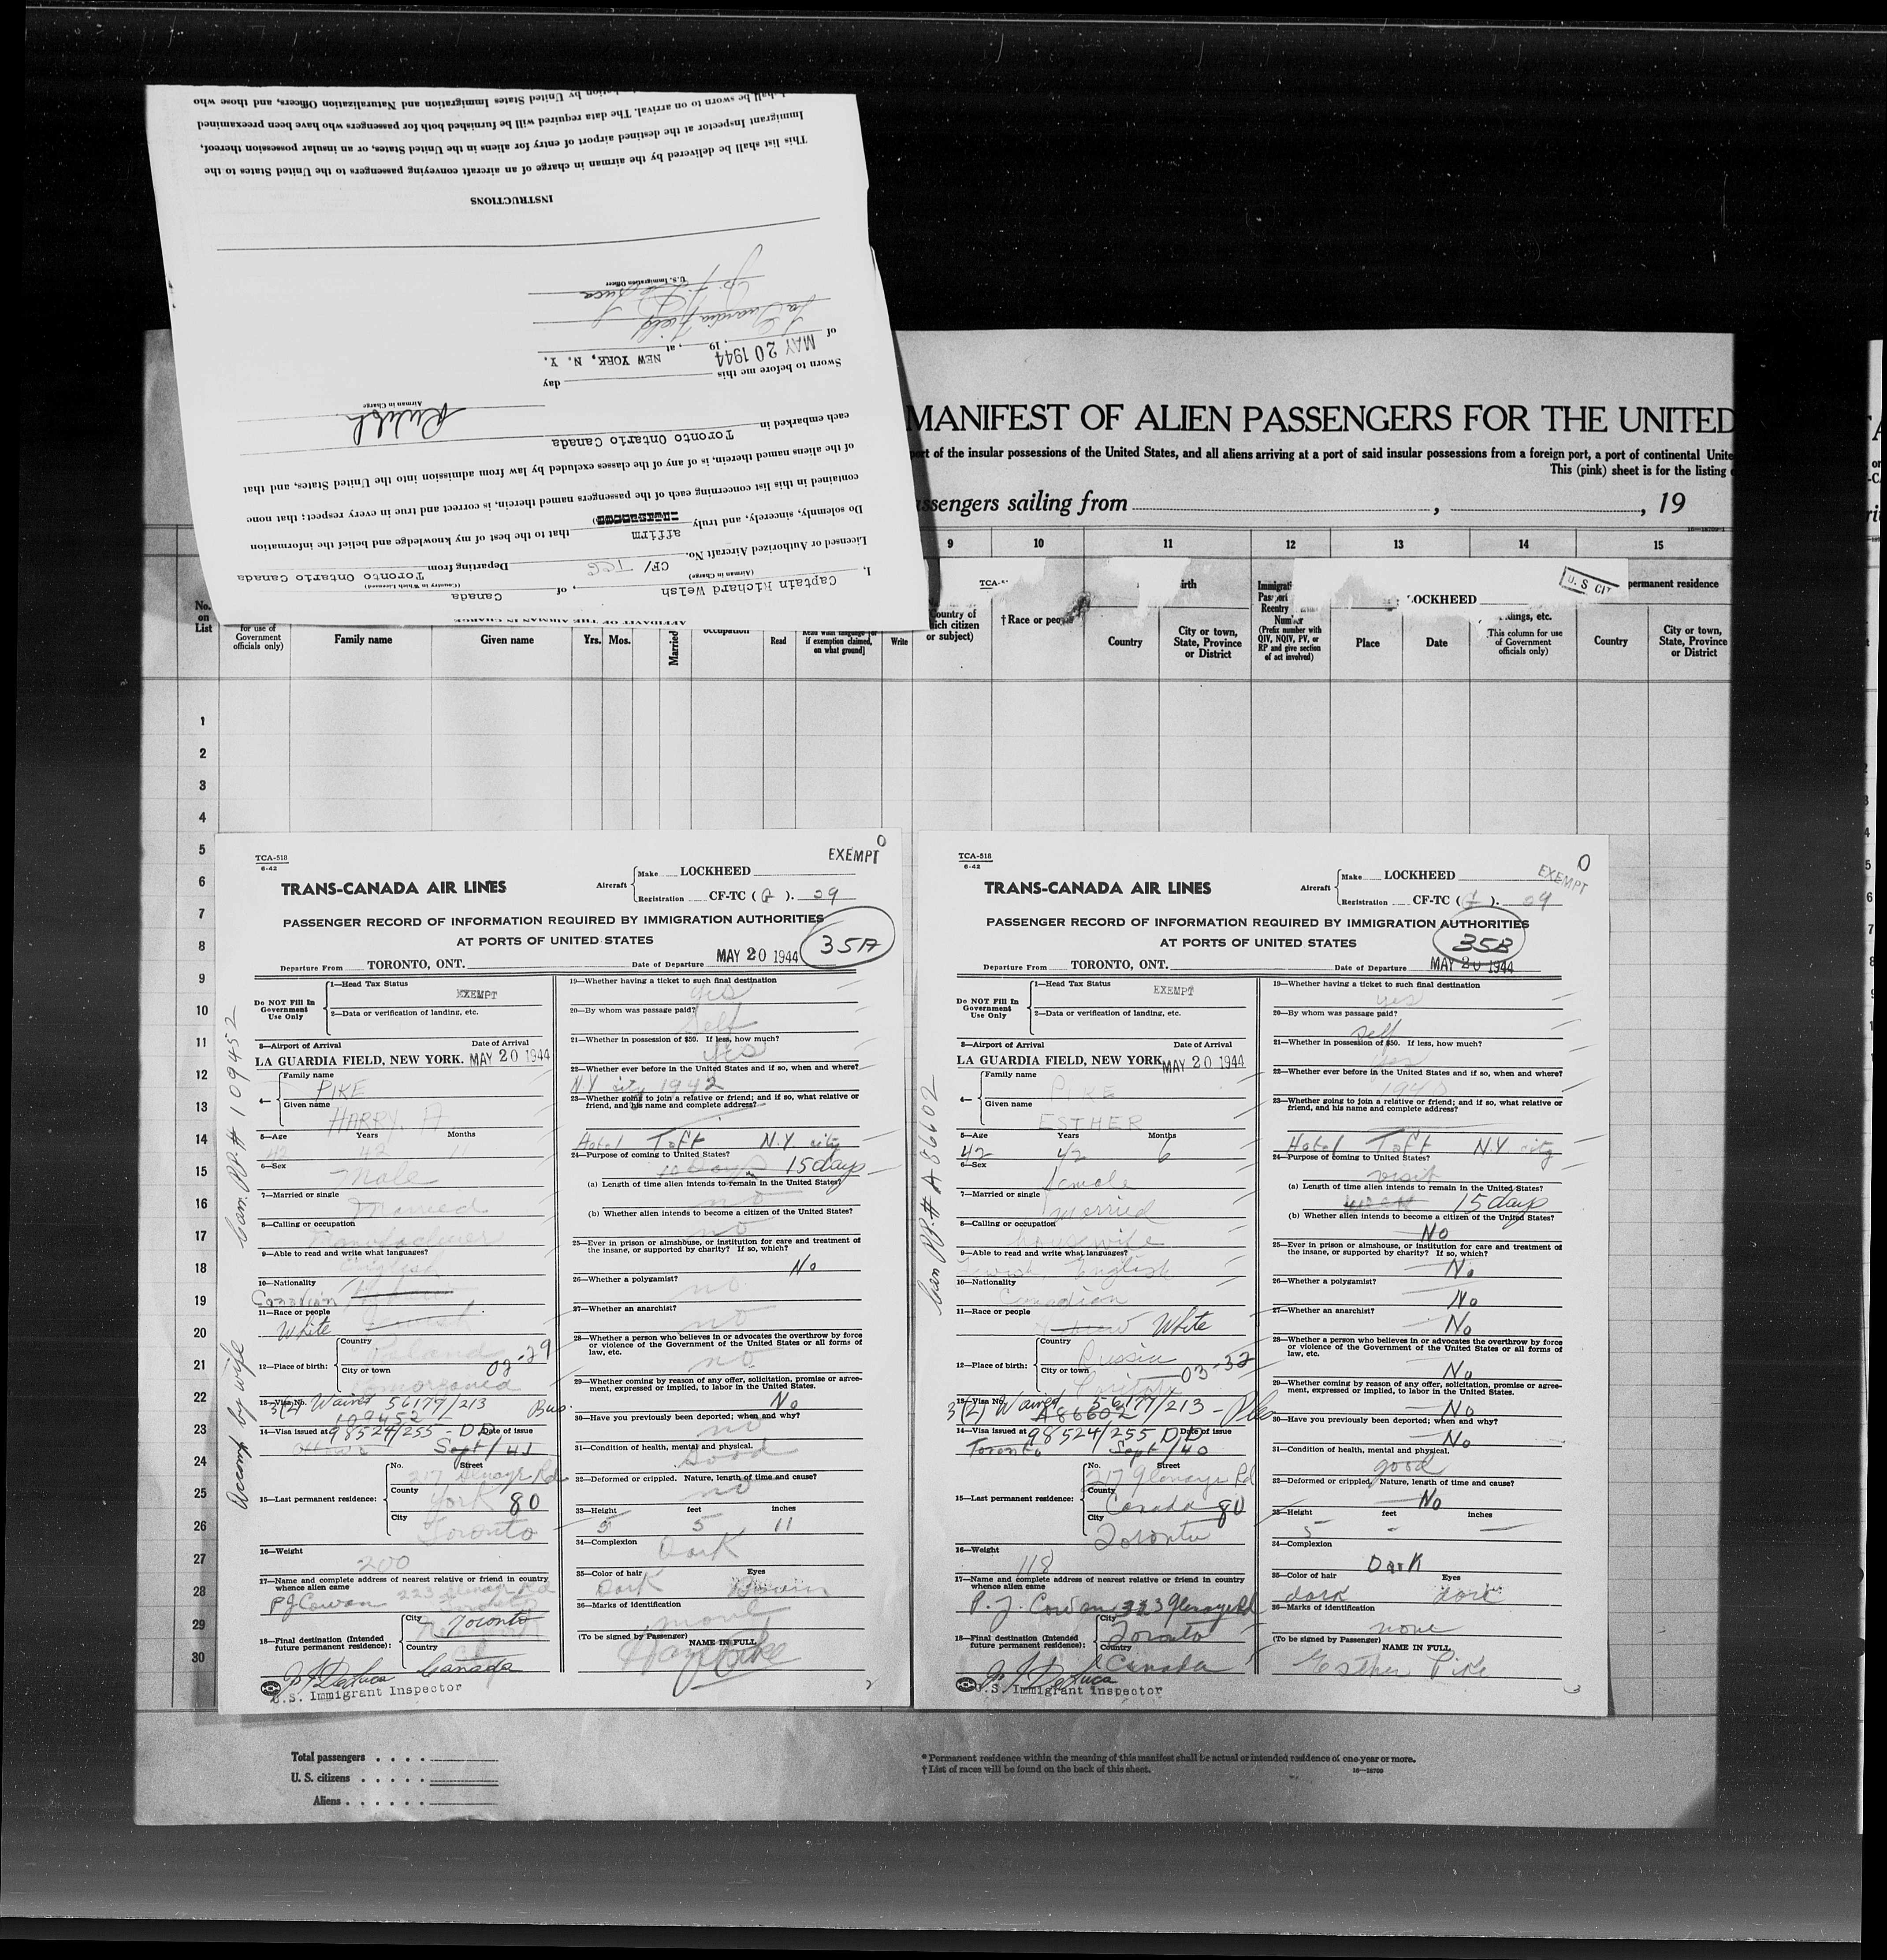 hall be sworn to on arrival. The data required will be furnished both for passengers who have been preexamined
by United States Immigration and Naturalization Officers, and those who
Immigrant Inspector at the destined airport of entry for aliens in the United States, or an insular possession thereof,
This list shall be delivered by the airman in charge of an aircraft conveying passengers to the United States to the
INSTRUCTIONS
U.S. Immigration Officer
La Guardia Field
of MAY 20 1944, 19, at NEW YORK, N. Y.
Sworn to before me this day
Airman in Charge
each embarked in Toronto Ontario Canada
of the aliens named therein, is of any of the classes excluded by law from admission into the United States, and that
contained in this list concerning each of the passengers named therein, is correct and true in every respect; that none
Do solemnly, sincerely, and truly affirm that to the best of my knowledge and belief the information
Licensed or Authorized Aircraft No. CF/ TCG Departing from Toronto Ontario Canada
(Airman in Charge) (Country in Which Licensed)
I, Captain Richard Welsh, of Canada
AFFIDAVIT OF THE AIRMAN IN CHARGE
MANIFEST OF ALIEN PASSENGERS FOR THE UNITED
port of the insular possessions of the United States, and all aliens arriving at a port of said insular possessions from a foreign port, a port of continental Unite
This (pink) sheet is for the listing
ssengers sailing from , , 19
9 10 11 12 13 14 15
TCA- irth LOCKHEED U. S CIT permanent residence
No. on List
for use of Government officials only)
Family name Given name Yrs. Mos. Married occupation Read Read what language [or if exemption claimed, on what ground] Write
Country of which citizen or subject) †Race or people Country City or town, State, Province or District
(Prefix number with QIV, NQIV, PV, or RP and give section of act involved)
Place Date
This column for use of Government officials only)
Country City or town, State, Province or District
1
2
3
4
5
6
7
8
9
10
11
12
13
14
15
16
17
18
19
20
21
22
23
24
25
26
27
28
29
30
TCA-518
6-42
EXEMPT 0
TRANS-CANADA AIR LINES
Aircraft Make LOCKHEED
Registration CF-TC ( ). 29
PASSENGER RECORD OF INFORMATION REQUIRED BY IMMIGRATION AUTHORITIES
AT PORTS OF UNITED STATES
35A
Departure From TORONTO, ONT. Date of Departure MAY 20 1944
Do NOT Fill In Government Use Only
1—Head Tax Status EXEMPT
2—Data or verification of landing, etc.
3—Airport of Arrival Date of Arrival
LA GUARDIA FIELD, NEW YORK. MAY 20 1944
4— Family name PIKE
Given name HARRY. A
5—Age Years Months
42 42 11
6—Sex Male
7—Married or single Married
8—Calling or occupation Manufacturer
9—Able to read and write what languages? English
10—Nationality Canadian
11—Race or people White
12—Place of birth: Country Poland 02-29
City or town
13—Visa No. 3(2) Waived 56177/213 Bus.
109452
14—Visa issued at 98524/255 - DD Date of issue
Ottawa Sept/41
15—Last permanent residence: No. Street 217 Glenayr Rd
County York 80
City Toronto
16—Weight 200
17—Name and complete address of nearest relative or friend in country whence alien came
P J Cowan 223 Glenayr Rd
18—Final destination (Intended future permanent residence): City Toronto
Country Canada
U.S. Immigrant Inspector
Can. P.P. # 109452
Accomp by wife
19—Whether having a ticket to such final destination
yes
20—By whom was passage paid?
Self
21—Whether in possession of $50. If less, how much?
yes
22—Whether ever before in the United States and if so, when and where?
N.Y city 1942
23—Whether going to join a relative or friend; and if so, what relative or friend, and his name and complete address?
Hotel Taft N.Y city
24—Purpose of coming to United States?
10 days 15 days
(a) Length of time alien intends to remain in the United States?
no
(b) Whether alien intends to become a citizen of the United States?
no
25—Ever in prison or almshouse, or institution for care and treatment of the insane, or supported by charity? If so, which?
No
26—Whether a polygamist? no
27—Whether an anarchist? no
28—Whether a person who believes in or advocates the overthrow by force or violence of the Government of the United States or all forms of law, etc. no
29—Whether coming by reason of any offer, solicitation, promise or agreement, expressed or implied, to labor in the United States.
No
30—Have you previously been deported; when and why?
no
31—Condition of health, mental and physical.
Good
32—Deformed or crippled. Nature, length of time and cause?
no
33—Height feet inches
5 5 11
34—Complexion Dark
35—Color of hair Eyes
Dark Brown
36—Marks of identification
none
(To be signed by Passenger) NAME IN FULL
Harry Pike
2
TCA-518
6-42
EXEMPT 0
TRANS-CANADA AIR LINES
Aircraft Make LOCKHEED
Registration CF-TC ( ). 29
PASSENGER RECORD OF INFORMATION REQUIRED BY IMMIGRATION AUTHORITIES
AT PORTS OF UNITED STATES
35B
Departure From TORONTO, ONT. Date of Departure MAY 20 1944
Do NOT Fill In Government Use Only
1—Head Tax Status EXEMPT
2—Data or verification of landing, etc.
3—Airport of Arrival Date of Arrival
LA GUARDIA FIELD, NEW YORK. MAY 20 1944
4— Family name PIKE
Given name ESTHER
5—Age Years Months
42 42 6
6—Sex female
7—Married or single married
8—Calling or occupation housewife
9—Able to read and write what languages? English
10—Nationality Canadian
11—Race or people White
12—Place of birth: Country Russia 03-32
City or town
13—Visa No. 3(2) Waived 56177/213 - Pleo
A86602
14—Visa issued at 98524/255 DD Date of issue
Toronto Sept/40
15—Last permanent residence: No. Street 217 Glenayr Rd
County Canada 80
City Toronto
16—Weight 118
17—Name and complete address of nearest relative or friend in country whence alien came
P. J. Cowan 323 Glenayr Rd
18—Final destination (Intended future permanent residence): City Toronto
Country Canada
U.S. Immigrant Inspector
Can P.P. # A 86602
19—Whether having a ticket to such final destination
yes
20—By whom was passage paid?
self
21—Whether in possession of $50. If less, how much?
yes
22—Whether ever before in the United States and if so, when and where?
23—Whether going to join a relative or friend; and if so, what relative or friend, and his name and complete address?
Hotel Taft N.Y city
24—Purpose of coming to United States?
visit
(a) Length of time alien intends to remain in the United States?
15 days
(b) Whether alien intends to become a citizen of the United States?
No
25—Ever in prison or almshouse, or institution for care and treatment of the insane, or supported by charity? If so, which?
No
26—Whether a polygamist?
No
27—Whether an anarchist?
No
28—Whether a person who believes in or advocates the overthrow by force or violence of the Government of the United States or all forms of law, etc.
No
29—Whether coming by reason of any offer, solicitation, promise or agreement, expressed or implied, to labor in the United States.
No
30—Have you previously been deported; when and why?
No
31—Condition of health, mental and physical.
good
32—Deformed or crippled. Nature, length of time and cause?
No
33—Height feet inches
5 - —
34—Complexion
Dark
35—Color of hair Eyes
dark dark
36—Marks of identification
none
(To be signed by Passenger) NAME IN FULL
Esther Pike
3
Total passengers . . . .
U. S. citizens . . . . .
Aliens . . . . . .
* Permanent residence within the meaning of this manifest shall be actual or intended residence of one year or more.
† List of races will be found on the back of this sheet.